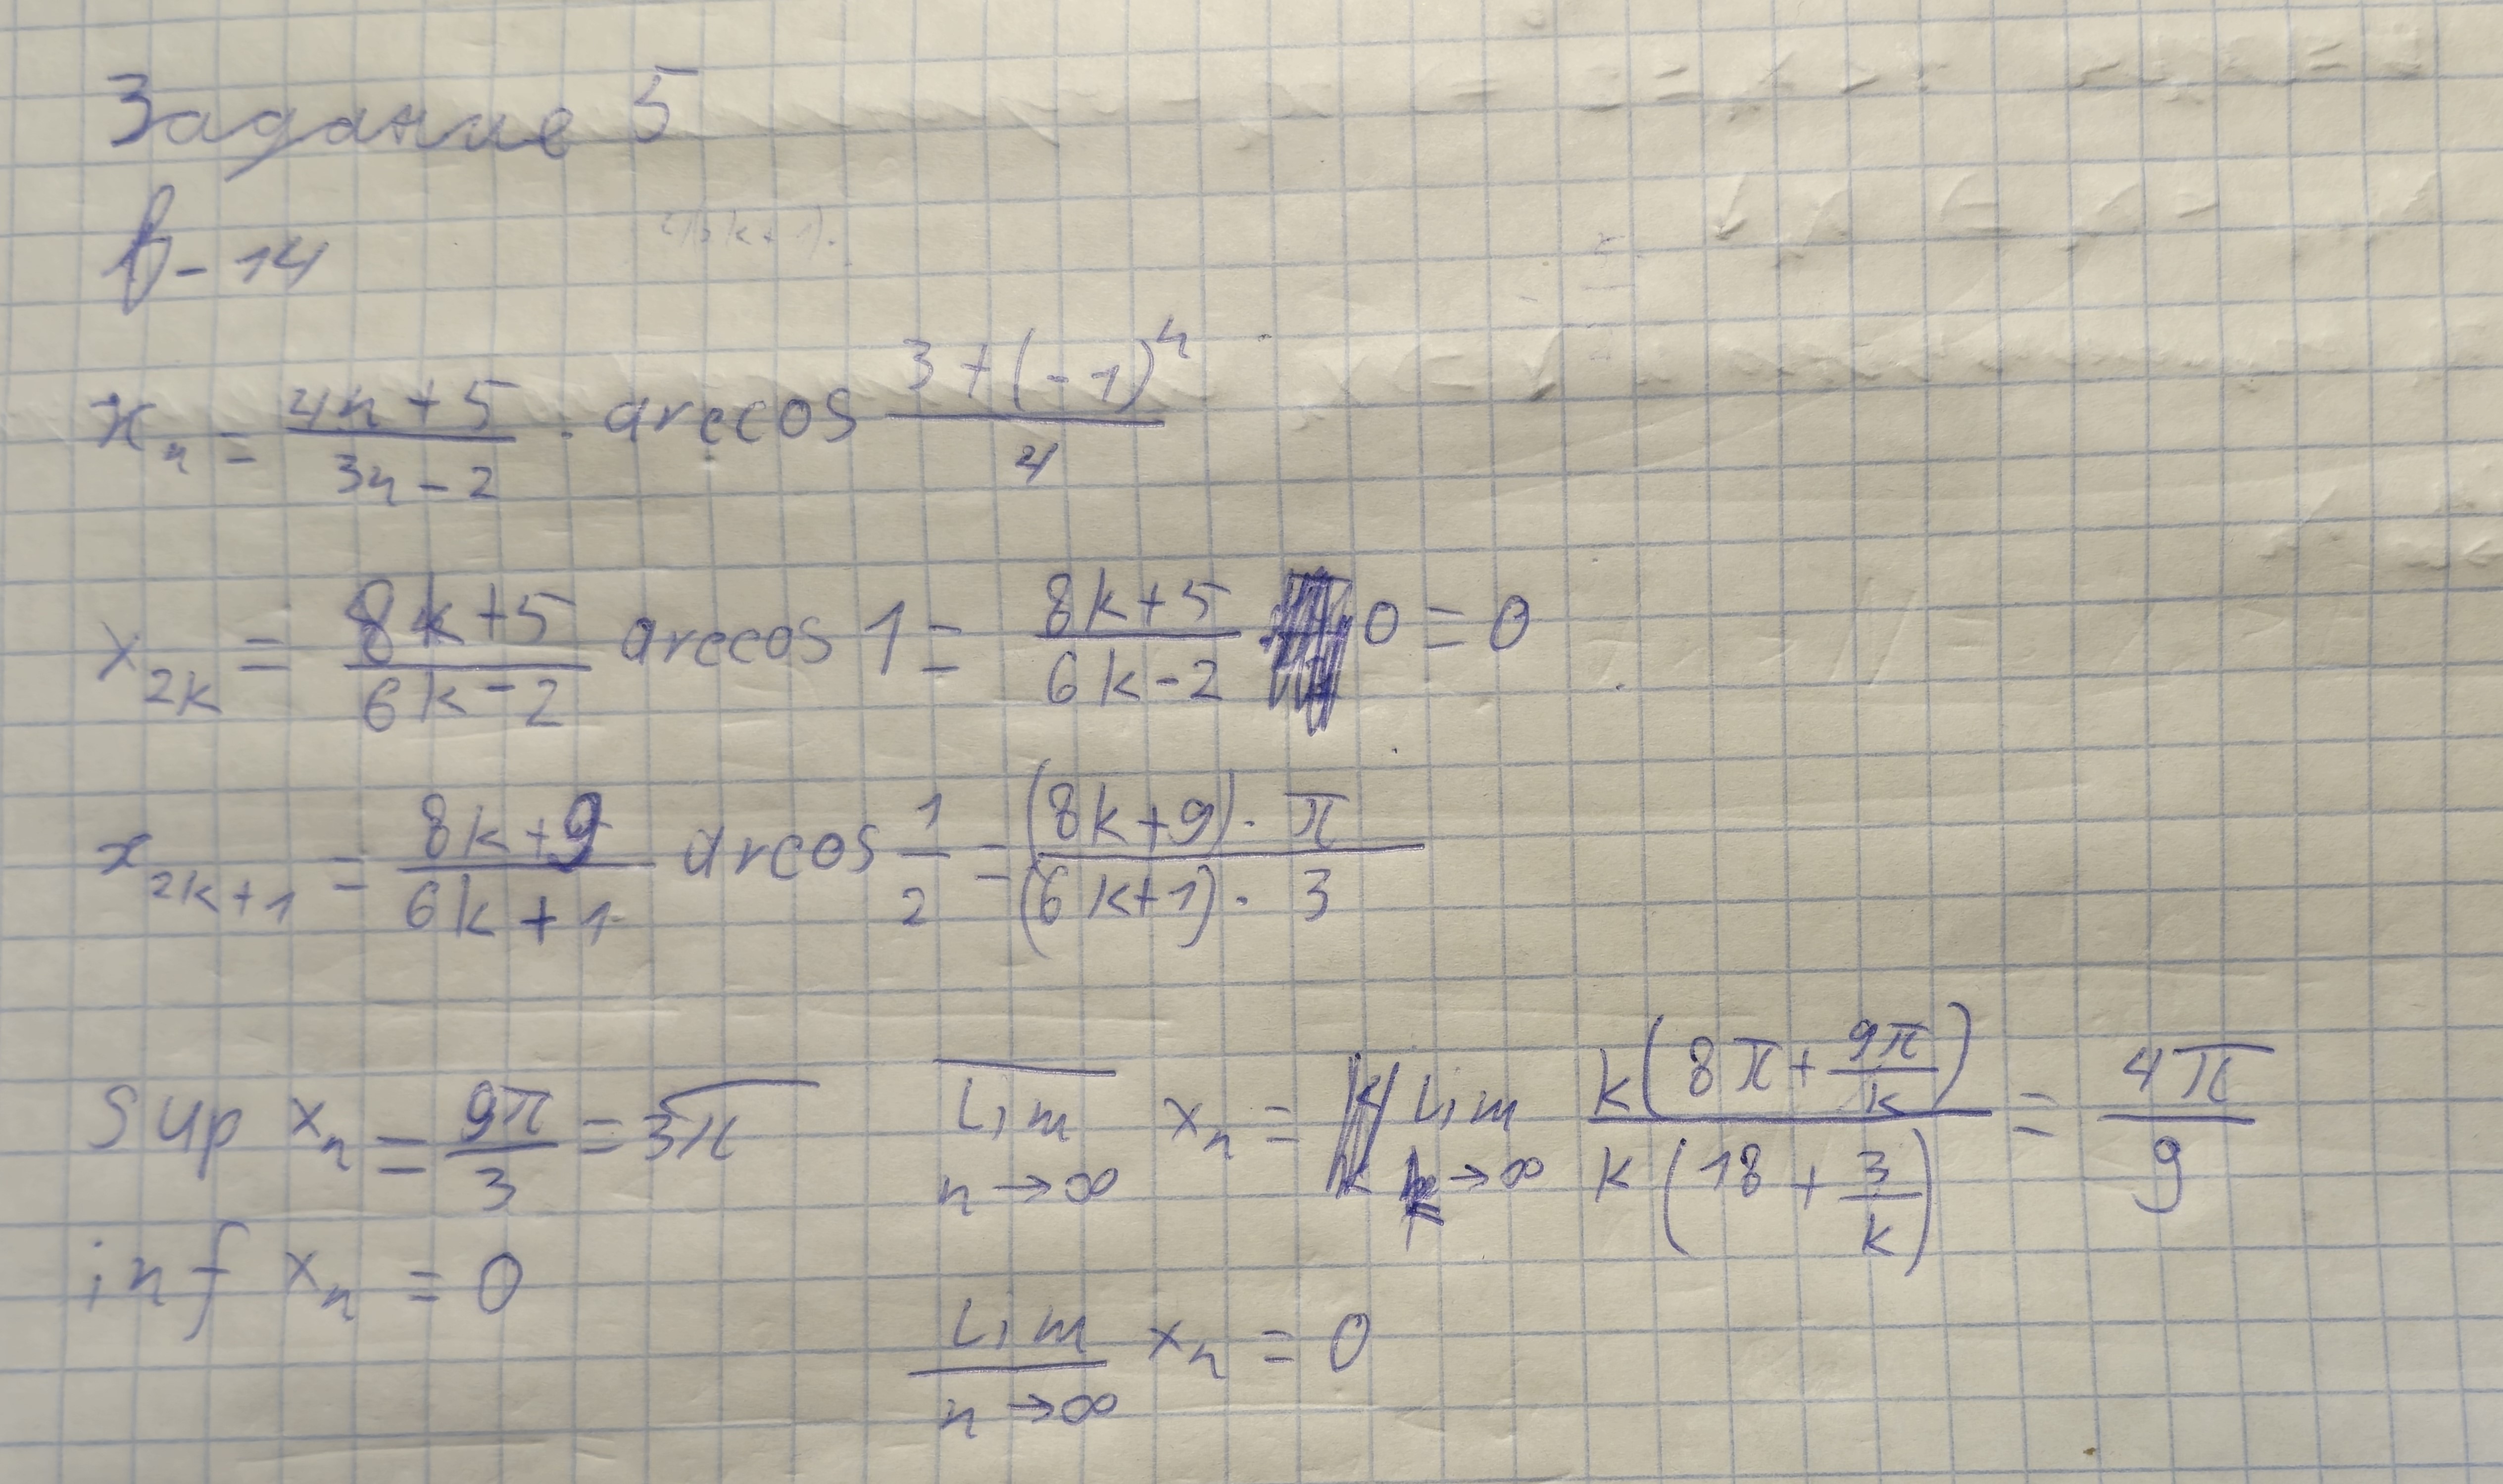 Задание 5
В-14
x_n = (4n+5)/(3n-2) · arccos (3+(-1)^n)/4
x_{2k} = (8k+5)/(6k-2) arccos 1 = (8k+5)/(6k-2) 0 = 0
x_{2k+1} = (8k+9)/(6k+1) arcos 1/2 = ((8k+9)·π)/((6k+1)·3)
Sup x_n = 9π/3 = 3π   \overline{Lim}_{n→∞} x_n = Lim_{k→∞} k(8π+9π/k)/k(18+3/k) = 4π/9
inf x_n = 0
\underline{Lim}_{n→∞} x_n = 0